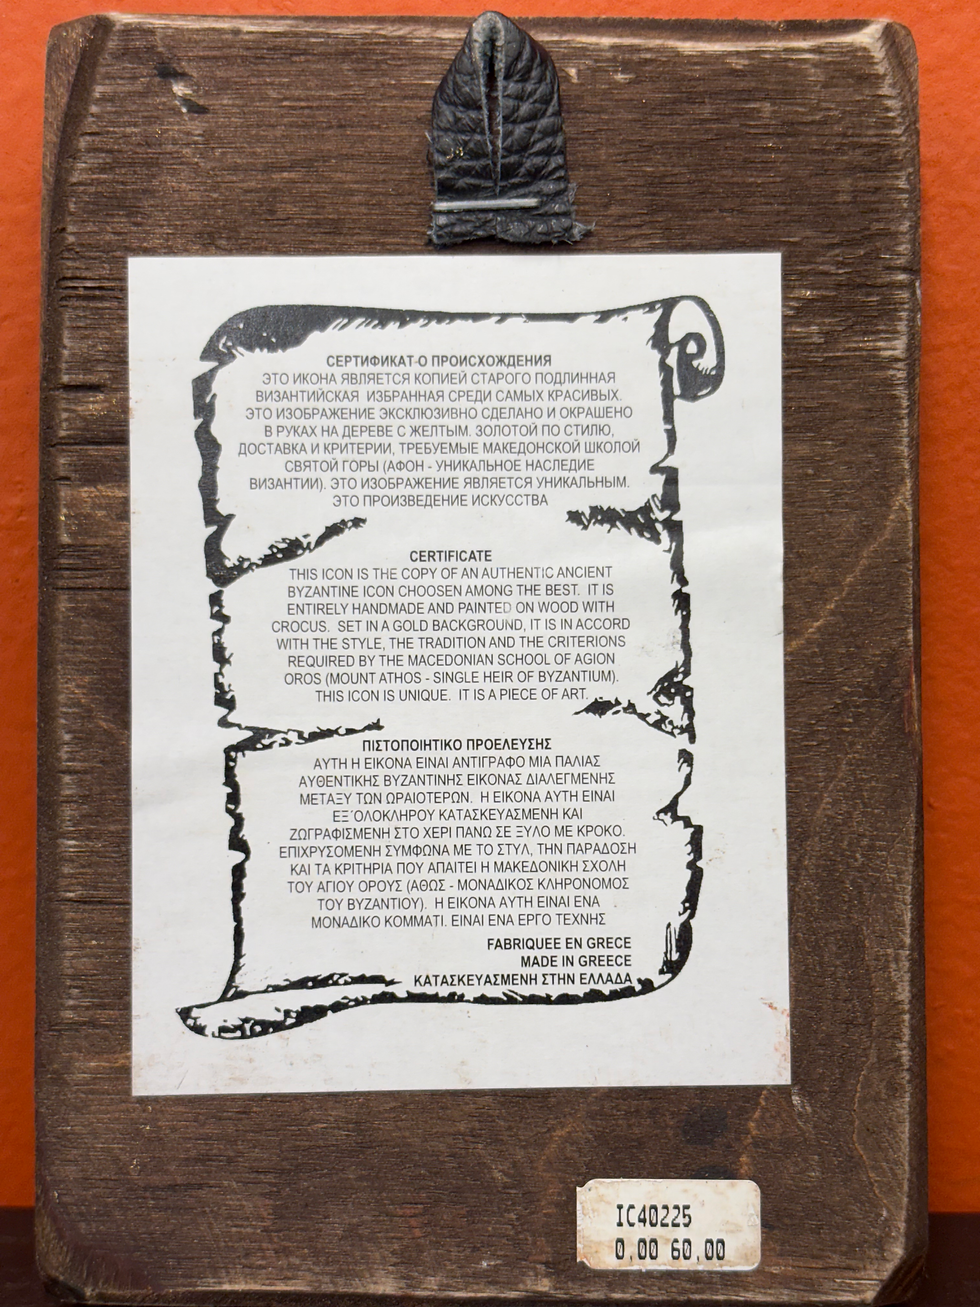 СЕРТИФИКАТ-О ПРОИСХОЖДЕНИЯ
ЭТО ИКОНА ЯВЛЯЕТСЯ КОПИЕЙ СТАРОГО ПОДЛИННАЯ
ВИЗАНТИЙСКАЯ ИЗБРАННАЯ СРЕДИ САМЫХ КРАСИВЫХ.
ЭТО ИЗОБРАЖЕНИЕ ЭКСКЛЮЗИВНО СДЕЛАНО И ОКРАШЕНО
В РУКАХ НА ДЕРЕВЕ С ЖЕЛТЫМ. ЗОЛОТОЙ ПО СТИЛЮ,
ДОСТАВКА И КРИТЕРИИ, ТРЕБУЕМЫЕ МАКЕДОНСКОЙ ШКОЛОЙ
СВЯТОЙ ГОРЫ (АФОН - УНИКАЛЬНОЕ НАСЛЕДИЕ
ВИЗАНТИИ). ЭТО ИЗОБРАЖЕНИЕ ЯВЛЯЕТСЯ УНИКАЛЬНЫМ.
ЭТО ПРОИЗВЕДЕНИЕ ИСКУССТВА
CERTIFICATE
THIS ICON IS THE COPY OF AN AUTHENTIC ANCIENT
BYZANTINE ICON CHOOSEN AMONG THE BEST. IT IS
ENTIRELY HANDMADE AND PAINTED ON WOOD WITH
CROCUS. SET IN A GOLD BACKGROUND, IT IS IN ACCORD
WITH THE STYLE, THE TRADITION AND THE CRITERIONS
REQUIRED BY THE MACEDONIAN SCHOOL OF AGION
OROS (MOUNT ATHOS - SINGLE HEIR OF BYZANTIUM).
THIS ICON IS UNIQUE. IT IS A PIECE OF ART.
ΠΙΣΤΟΠΟΙΗΤΙΚΟ ΠΡΟΕΛΕΥΣΗΣ
ΑΥΤΗ Η ΕΙΚΟΝΑ ΕΙΝΑΙ ΑΝΤΙΓΡΑΦΟ ΜΙΑ ΠΑΛΙΑΣ
ΑΥΘΕΝΤΙΚΗΣ ΒΥΖΑΝΤΙΝΗΣ ΕΙΚΟΝΑΣ ΔΙΑΛΕΓΜΕΝΗΣ
ΜΕΤΑΞΥ ΤΩΝ ΩΡΑΙΟΤΕΡΩΝ. Η ΕΙΚΟΝΑ ΑΥΤΗ ΕΙΝΑΙ
ΕΞ΄ΟΛΟΚΛΗΡΟΥ ΚΑΤΑΣΚΕΥΑΣΜΕΝΗ ΚΑΙ
ΖΩΓΡΑΦΙΣΜΕΝΗ ΣΤΟ ΧΕΡΙ ΠΑΝΩ ΣΕ ΞΥΛΟ ΜΕ ΚΡΟΚΟ.
ΕΠΙΧΡΥΣΟΜΕΝΗ ΣΥΜΦΩΝΑ ΜΕ ΤΟ ΣΤΥΛ, ΤΗΝ ΠΑΡΑΔΟΣΗ
ΚΑΙ ΤΑ ΚΡΙΤΗΡΙΑ ΠΟΥ ΑΠΑΙΤΕΙ Η ΜΑΚΕΔΟΝΙΚΗ ΣΧΟΛΗ
ΤΟΥ ΑΓΙΟΥ ΟΡΟΥΣ (ΑΘΩΣ - ΜΟΝΑΔΙΚΟΣ ΚΛΗΡΟΝΟΜΟΣ
ΤΟΥ ΒΥΖΑΝΤΙΟΥ). Η ΕΙΚΟΝΑ ΑΥΤΗ ΕΙΝΑΙ ΕΝΑ
ΜΟΝΑΔΙΚΟ ΚΟΜΜΑΤΙ. ΕΙΝΑΙ ΕΝΑ ΕΡΓΟ ΤΕΧΝΗΣ
FABRIQUEE EN GRECE
MADE IN GREECE
ΚΑΤΑΣΚΕΥΑΣΜΕΝΗ ΣΤΗΝ ΕΛΛΑΔΑ
IC40225
0,00 60,00